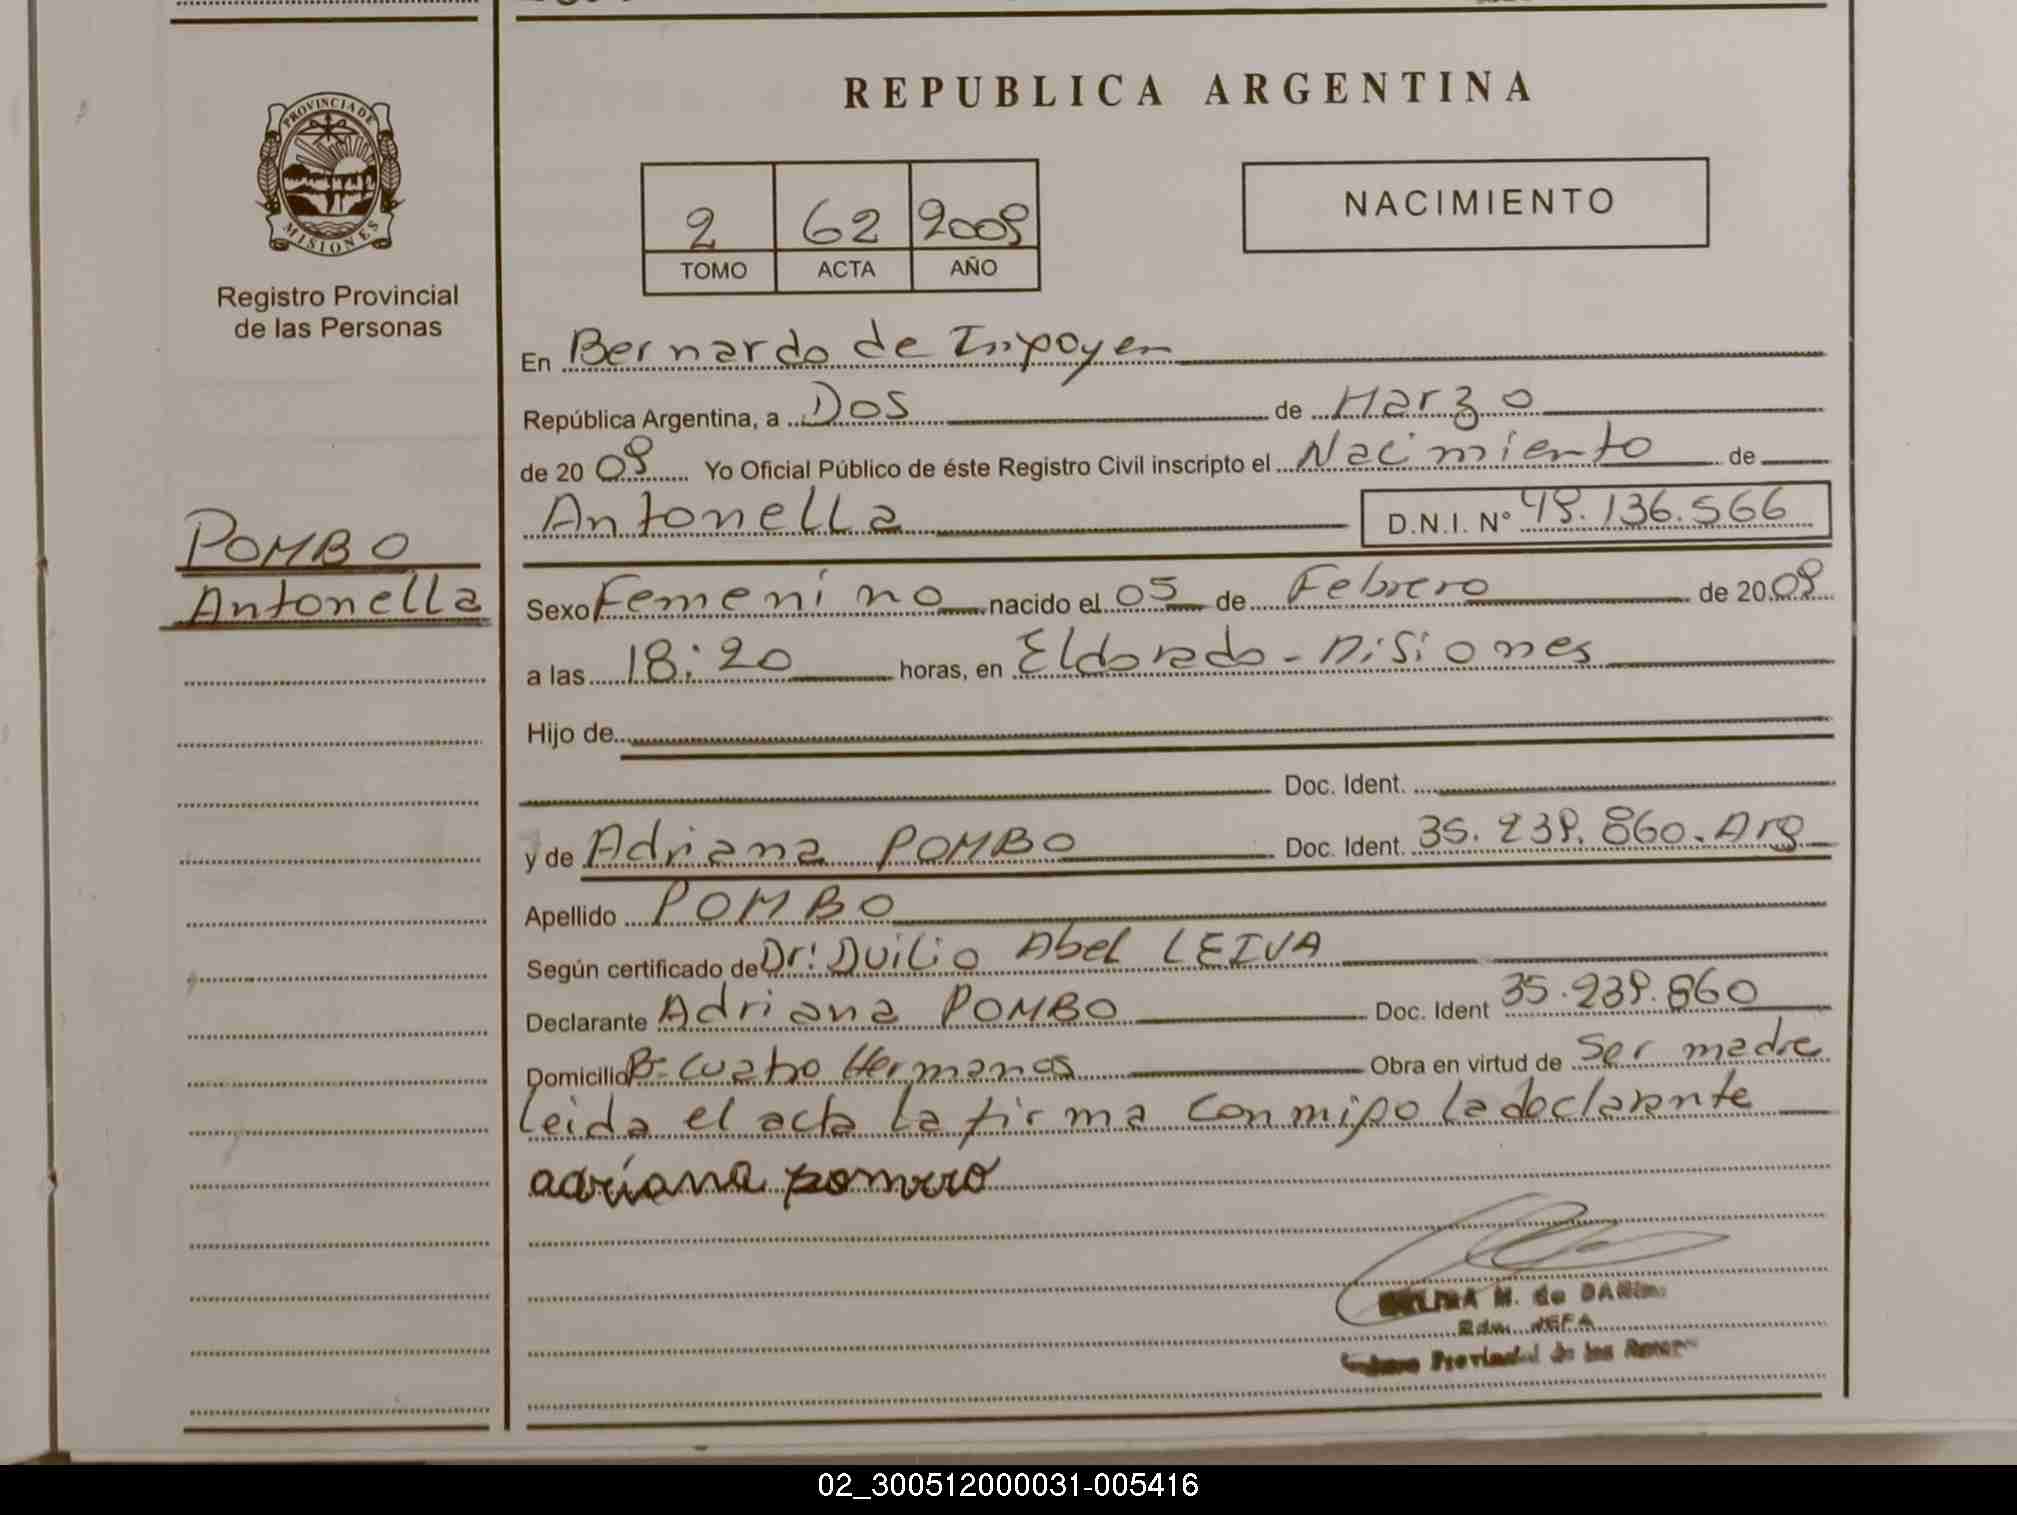 REPUBLICA ARGENTINA
PROVINCIA DE
MISIONES
Registro Provincial
de las Personas
2 62 2009
TOMO ACTA AÑO
NACIMIENTO
En Bernardo de Irigoyen
República Argentina, a Dos de Marzo
de 2009 Yo Oficial Público de éste Registro Civil inscripto el Nacimiento de
Antonella D.N.I. N° 49.136.566
POMBO
Antonella
Sexo Femenino nacido el 05 de Febrero de 2009
a las 18:20 horas, en Eldorado - Misiones
Hijo de
Doc. Ident.
y de Adriana POMBO Doc. Ident. 35.239.860. Arg
Apellido POMBO
Según certificado de Dr: Duilio Abel LEIVA
Declarante Adriana POMBO Doc. Ident 35.239.860
Domicilio Bº Cuatro Hermanos Obra en virtud de Ser madre
Leida el acta la firma conmigo la declarante
adriana
M. de
JEFA
Provincial de las
02_300512000031-005416